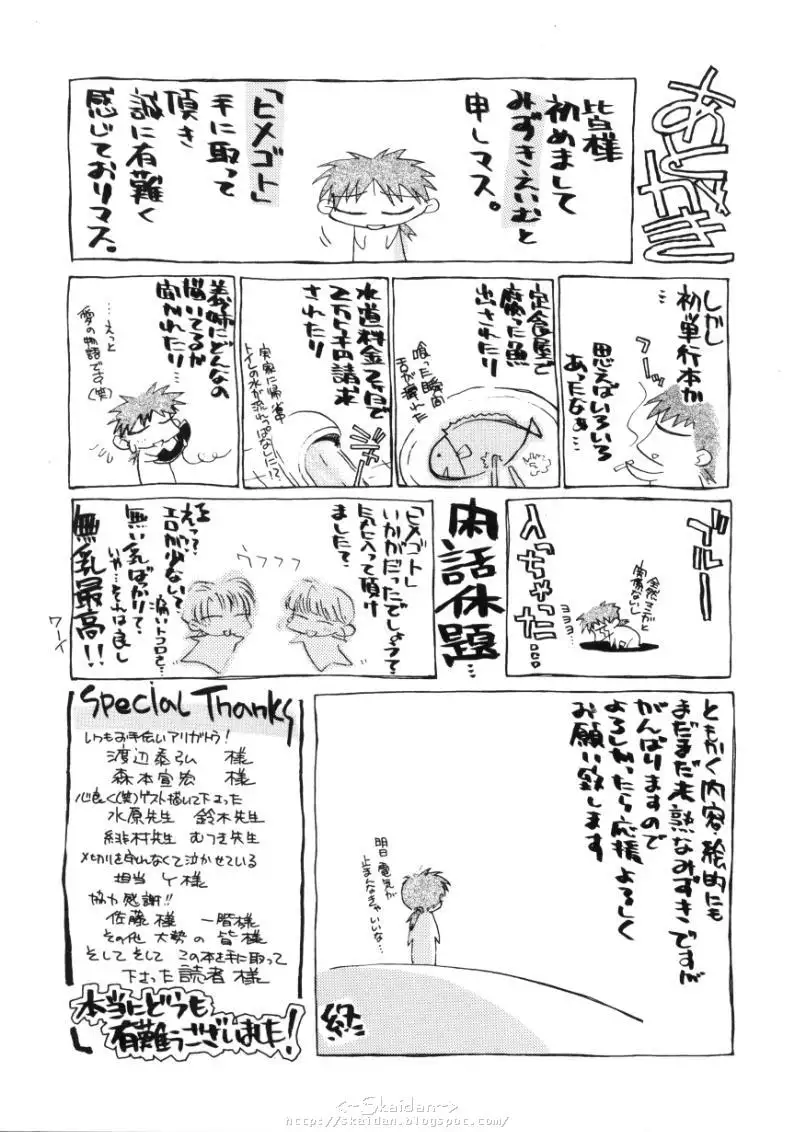 あとがき
皆様
初めまして
みずきえいむと
申しマス。
「ヒメゴト」
手に取って
頂き
誠に有難く
感じておりマス。
しかし
初単行本か
…
フーッ
思えばいろいろ
あったなぁ…
定食屋で
腐った魚
出されたり
喰った瞬間
舌が痺れた
水道料金2ヶ月で
2万5千円請求
されたり
実家に帰省中
トイレの水が流れっぱなしに!?
義姉にどんなの
描いてるか
聞かれたり…
…えっと
愛の物語です(笑)
ブルー
入っちゃった…
全然マンガと
関係ないし
ヨヨヨ…
閑話休題
「ヒメゴト」
いかがだったでしょうて
気に入って頂け
ましたて
ウフフフ
え?
エロが少ないて
痛いトコロを…
無い乳ばっかりて
いや…それは良し
無乳最高!!
ワーイ
ともかく内容・絵的にも
まだまだ未熟なみずきですが
がんばりますので
よろしかったら応援よろしく
お願い致します
明日電気が
止まんなきゃいいな…
終
Special Thanks
いつもお手伝いアリガトう!
渡辺泰弘 様
森本宣宏 様
心良く(笑)ゲスト描いて下さった
水原先生 鈴木先生
緋村先生 むつき先生
〆切りを守れなくて泣かせている
担当 Y様
協力感謝!!
佐藤様 一階様
その他 大勢の 皆様
そして そして この本を手に取って
下さった読者様
本当にどうも
有難うございました!
<-~Skaidan~->
http://skaidan.blogspot.com/